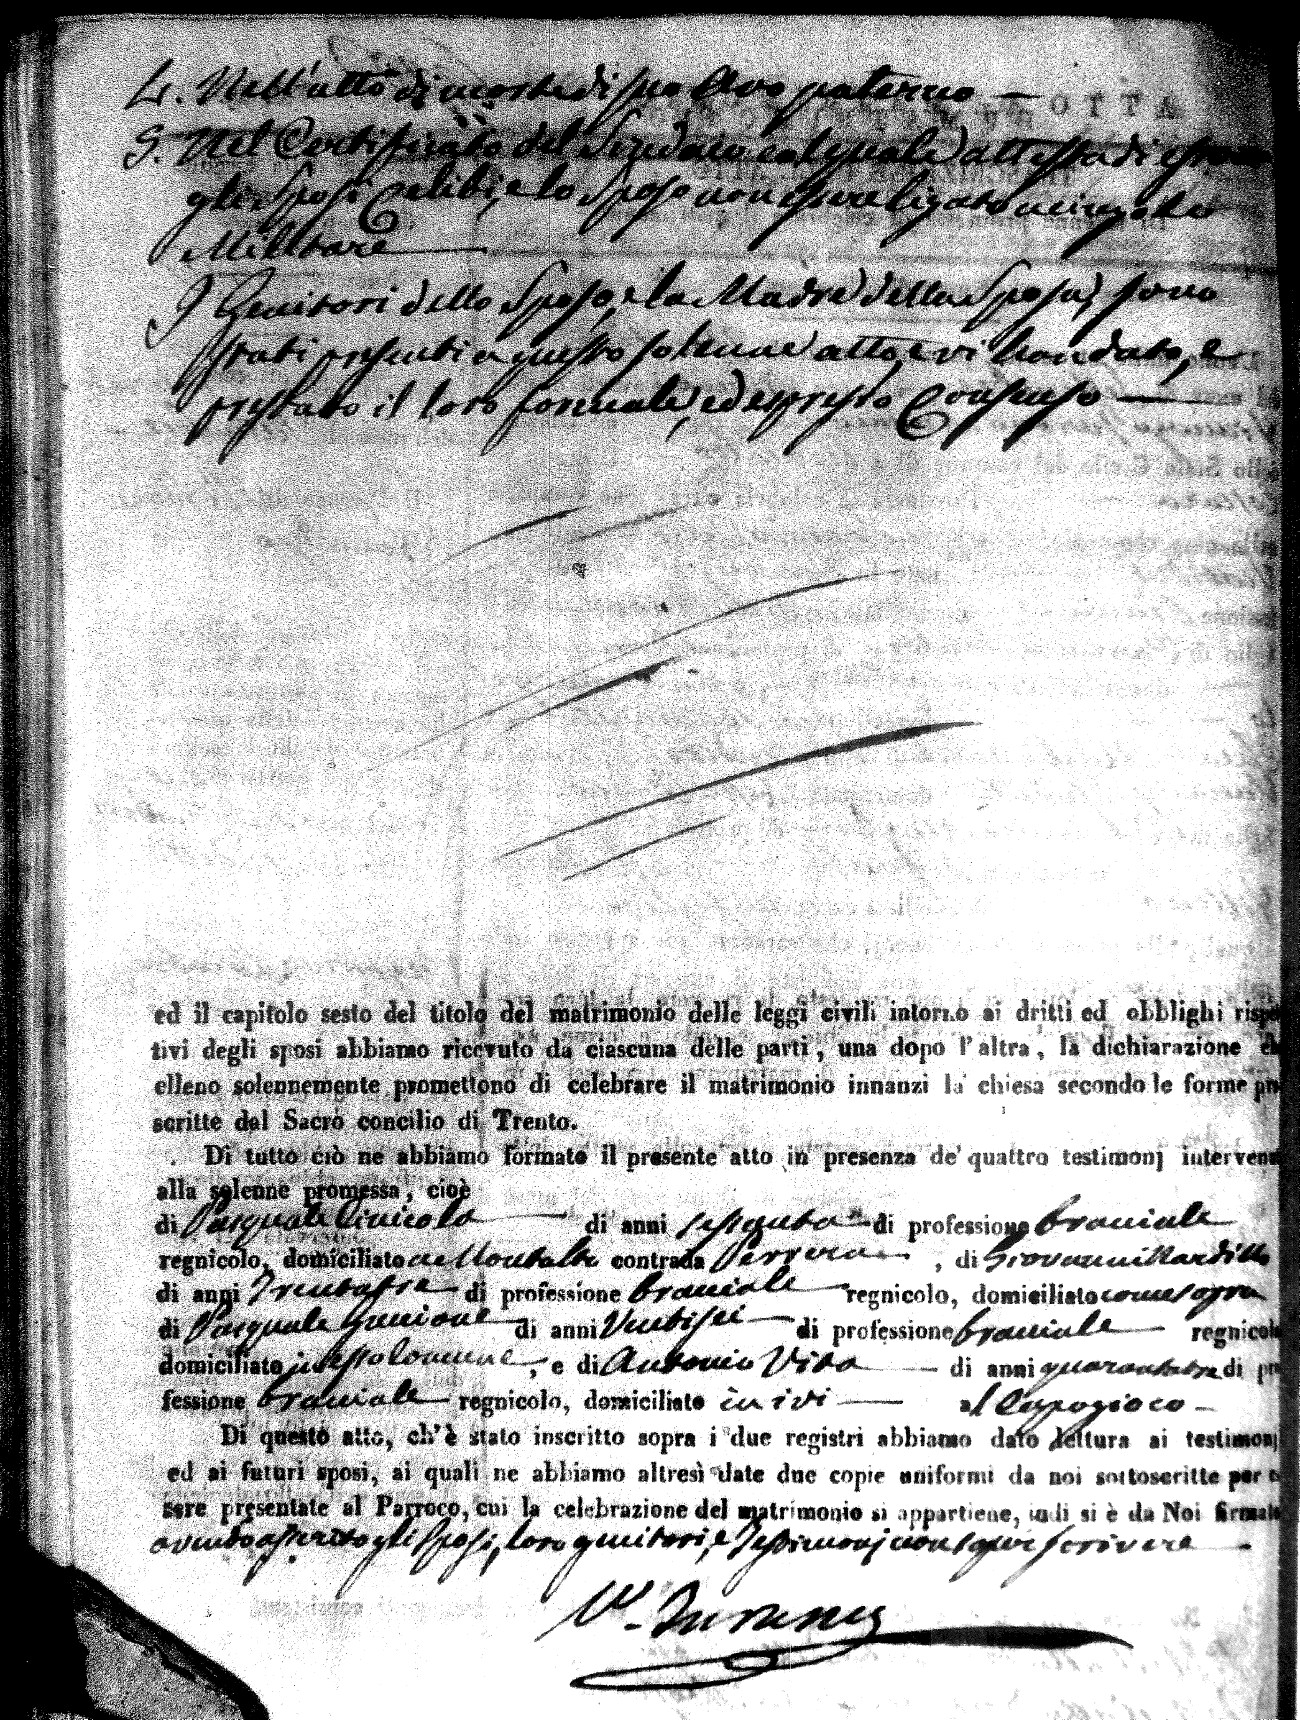 4. Nell'atto di morte di suo Avo paterno —
5. Nel Certificato del Sindaco col quale attesta di essere
gli Sposi Celibi, e lo Sposo non essere ligato a vincolo
Militare —
I Genitori dello Sposo, e la Madre della Sposa, sono
stati presenti a questo solenne atto, e vi han dato, e
prestato il loro formale, ed espresso Consenso —
ed il capitolo sesto del titolo del matrimonio delle leggi civili intorno ai dritti ed obblighi rispe
tivi degli sposi abbiamo ricevuto da ciascuna delle parti, una dopo l'altra, la dichiarazione ch
elleno solennemente promettono di celebrare il matrimonio innanzi la chiesa secondo le forme pre
scritte dal Sacro concilio di Trento.
Di tutto ciò ne abbiamo formato il presente atto in presenza de' quattro testimonj intervenu
alla solenne promessa, cioè
di Pasquale — di anni sessanta — di professione bracciale
regnicolo, domiciliato contrada , di Giovanni
di anni Trentatre di professione bracciale regnicolo, domiciliato come sopra
di Pasquale di anni Ventisei — di professione bracciale — regnicolo
domiciliato , e di Antonio Vita — di anni quarantatre di pro
fessione bracciale regnicolo, domiciliato ivi —
Di questo atto, ch'è stato inscritto sopra i due registri abbiamo dato lettura ai testimonj
ed ai futuri sposi, ai quali ne abbiamo altresì date due copie uniformi da noi sottoscritte per e
sere presentate al Parroco, cui la celebrazione del matrimonio si appartiene, indi si è da Noi firmato
avendo asserito gli Sposi, loro genitori, e Testimonj non saper scrivere —